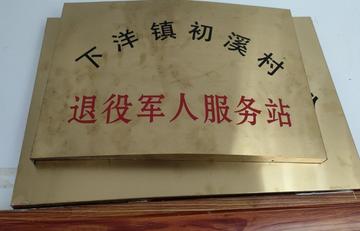 下洋镇初溪村
退役军人服务站